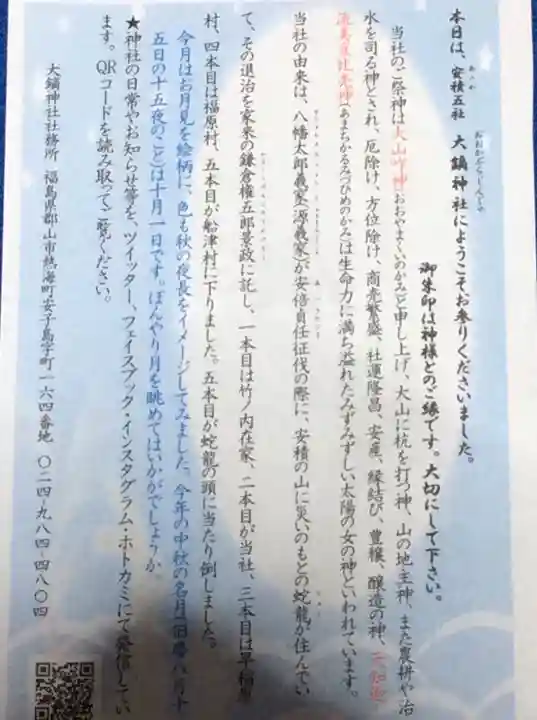 本日は、安積五社 大鏑神社にようこそお参りくださいました。
御朱印は神様とのご縁です。大切にして下さい。
当社のご祭神は大山咋神(おおやまくいのかみ)と申し上げ、大山に杭を打つ神、山の地主神、また農耕や治
水を司る神とされ、厄除け、方位除け、商売繁盛、社運隆昌、安産、縁結び、豊穣、醸造の神、
(あまちかるみづひめのかみ)は生命力に満ち溢れたみずみずしい太陽の女の神といわれています。
当社の由来は、八幡太郎義家(源義家)が安倍貞任征伐の際に、安積の山に災いのもとの蛇龍が住んでい
て、その退治を家来の鎌倉権五郎景政に託し、一本目は竹ノ内在家、二本目が当社、三本目は早稲原
村、四本目は福原村、五本目が船津村に下りました。五本目が蛇龍の頭に当たり倒しました。
今月はお月見を絵柄に、色も秋の夜長をイメージしてみました。今年の中秋の名月(旧暦八月十
五日の十五夜のこと)は十月一日です。ぼんやり月を眺めてはいかがでしょうか。
★神社の日常やお知らせ等を、ツイッター、フェイスブック・インスタグラム・ホトカミにて発信してい
ます。QRコードを読み取ってご覧ください。
大鏑神社社務所 福島県郡山市熱海町安子島字町一六四番地 〇二四-九八四-四八〇四